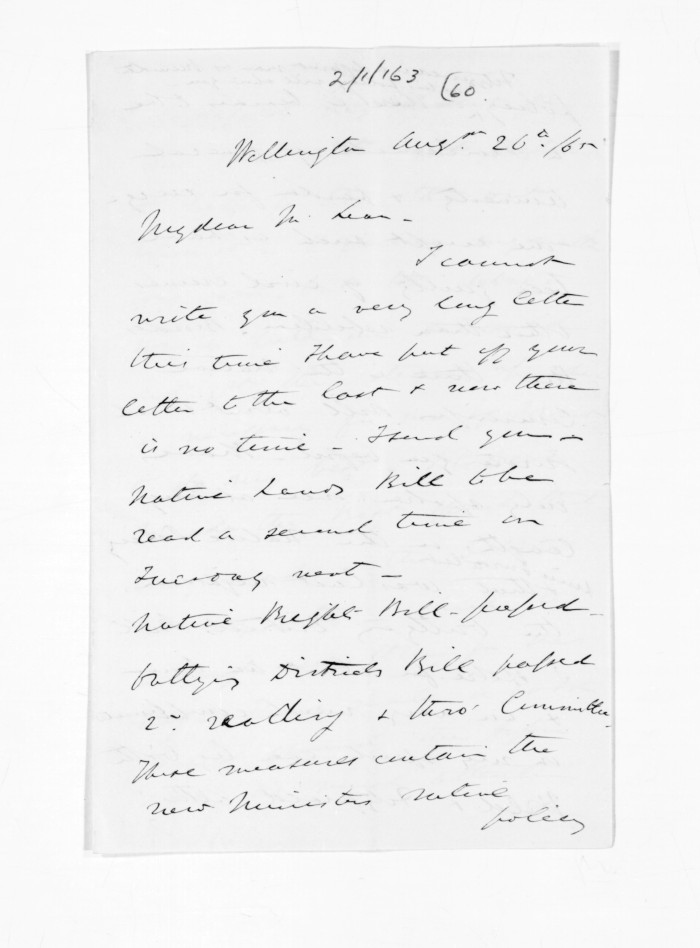 2/1/163 (60.
Wellington Augst 26th /65
My dear McLean -
I cannot
write you a very long letter
this time I have put off your
letter to the last & now there
is no time - I send you -
Native Lands Bill to be
read a second time on
Tuesday next -
Native Rights Bill - passed -
Outlying Districts Bill passed
2d reading & thro' Committee -
These measures contain the
new Ministers native
policy